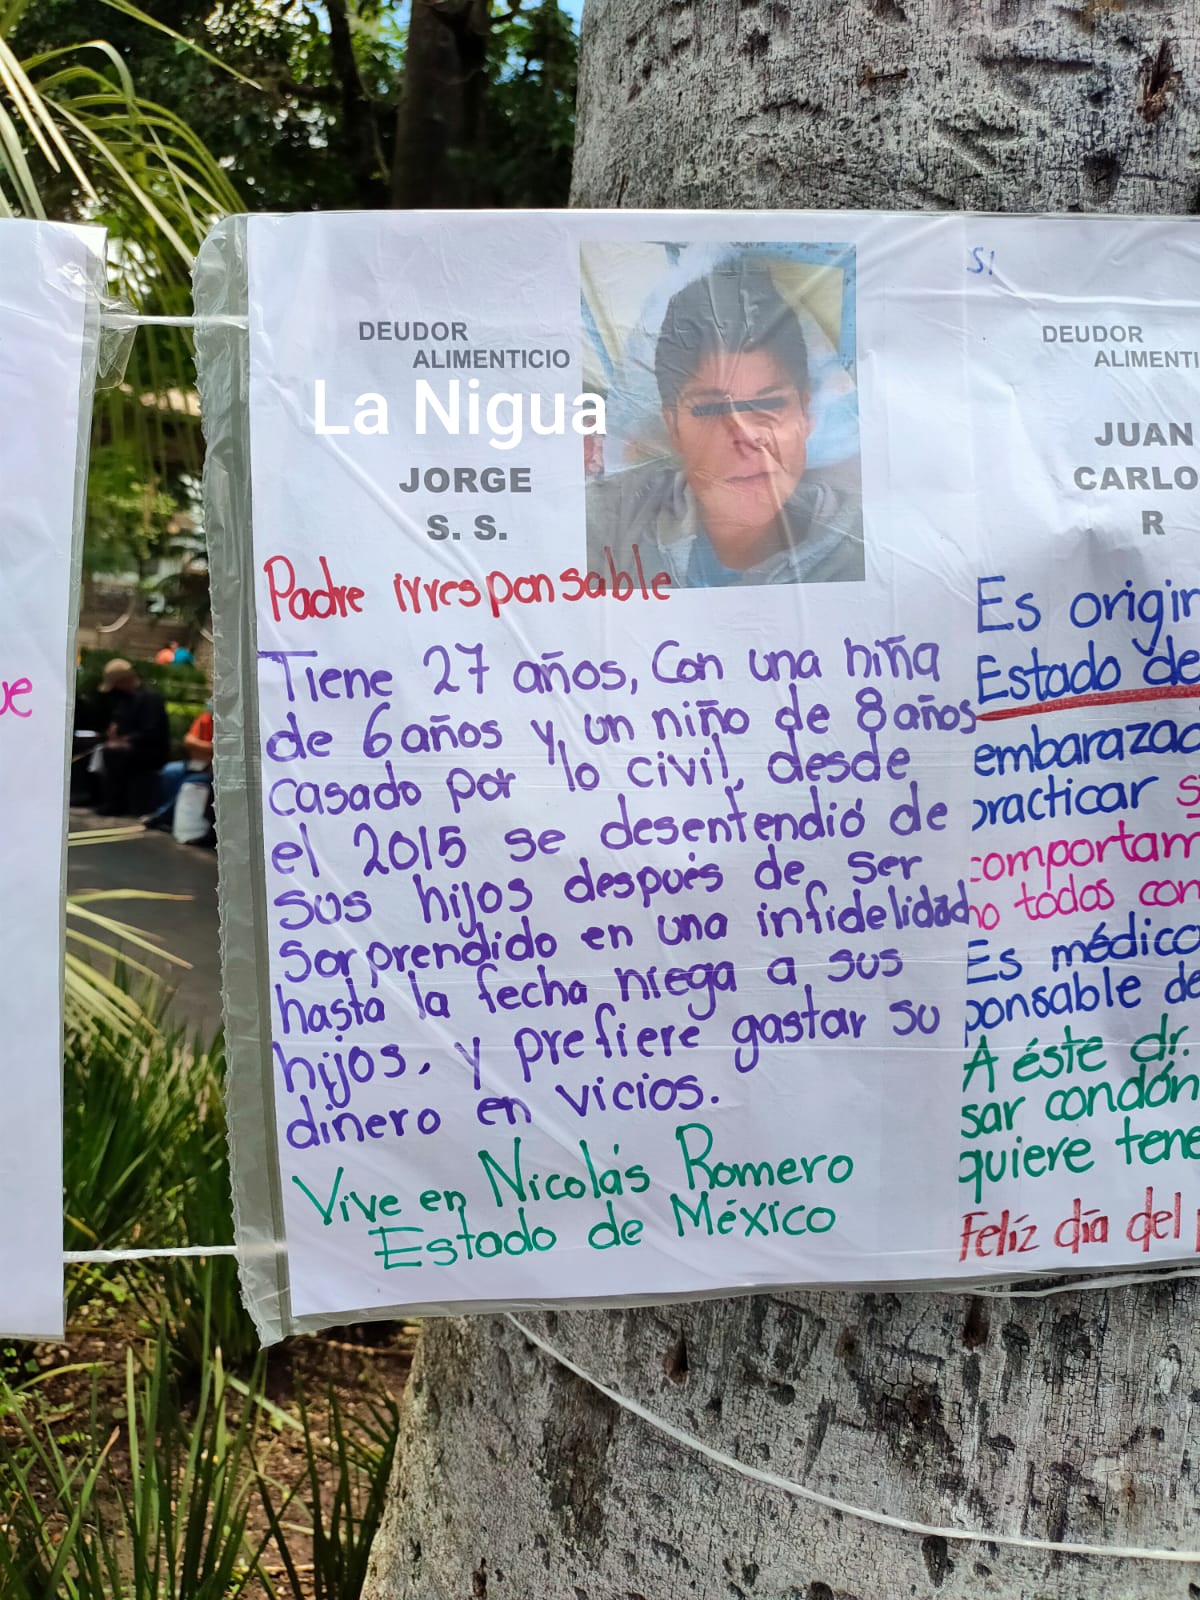 DEUDOR
ALIMENTICIO
La Nigua
JORGE
S. S.
Padre irresponsable
Tiene 27 años, Con una niña
de 6 años y un niño de 8 años
casado por lo civil, desde
el 2015 se desentendió de
sus hijos después de ser
sorprendido en una infidelidad
hasta la fecha niega a sus
hijos. y prefiere gastar su
dinero en vicios.
Vive en Nicolás Romero
Estado de México
SI
DEUDOR
ALIMENTI
JUAN
CARLO
R
Es origin
Estado de
embarazad
practicar s
comportam
no todos con
Es médico
ponsable de
A éste dr.
sar condón
quiere tene
Felíz día del p
ue